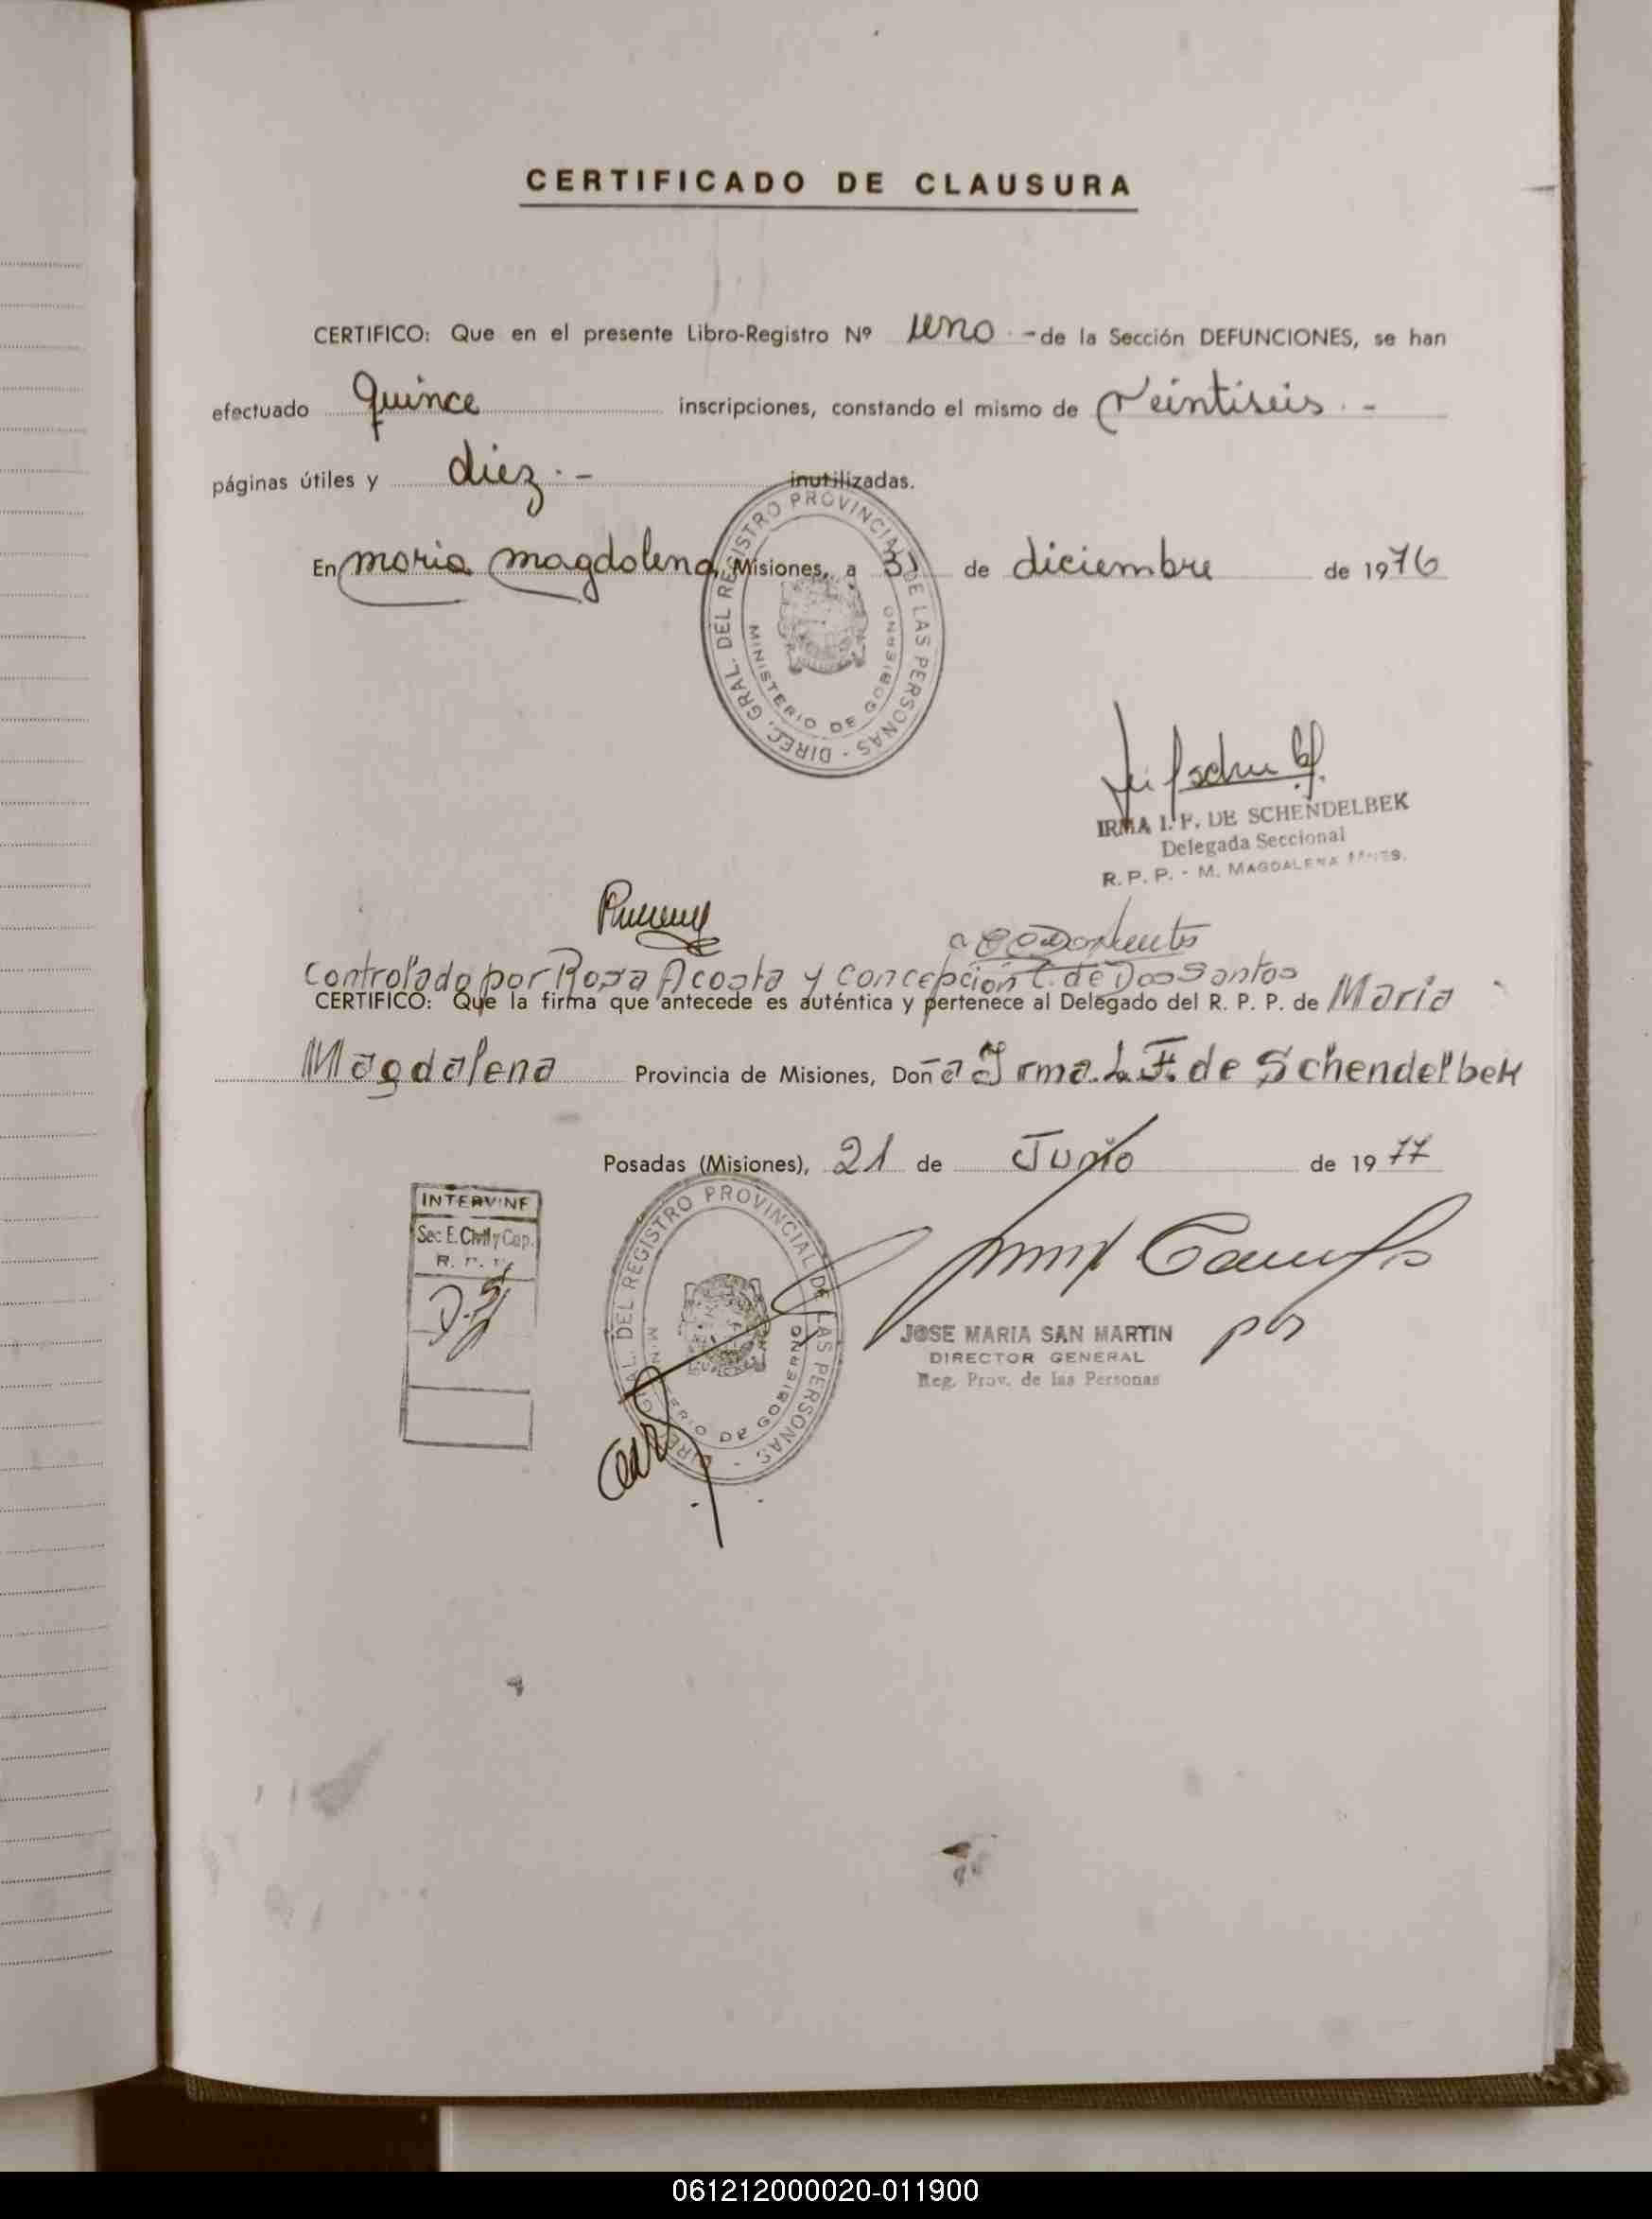 CERTIFICADO DE CLAUSURA
CERTIFICO: Que en el presente Libro-Registro Nº uno.- de la Sección DEFUNCIONES, se han
efectuado quince inscripciones, constando el mismo de veintiseis.-
páginas útiles y diez.- inutilizadas.
En maria magdalena, Misiones, a 31 de diciembre de 1976
DIREC. GRAL. DEL REGISTRO PROVINCIAL DE LAS PERSONAS -
MINISTERIO DE GOBIERNO
IRMA I. F. DE SCHENDELBEK
Delegada Seccional
R. P. P. - M. MAGDALENA MNES.
Controlado por Rosa Acosta y Concepción C. de Dos Santos
CERTIFICO: Que la firma que antecede es auténtica y pertenece al Delegado del R. P. P. de Maria
Magdalena Provincia de Misiones, Doña Irma I. F. de Schendelbek
Posadas (Misiones), 21 de Junio de 1977
INTERVINE
Sec E. Civil y Cap.
R. P. P.
DIREC. GRAL. DEL REGISTRO PROVINCIAL DE LAS PERSONAS -
MINISTERIO DE GOBIERNO
por
JOSE MARIA SAN MARTIN
DIRECTOR GENERAL
Reg. Prov. de las Personas
061212000020-011900